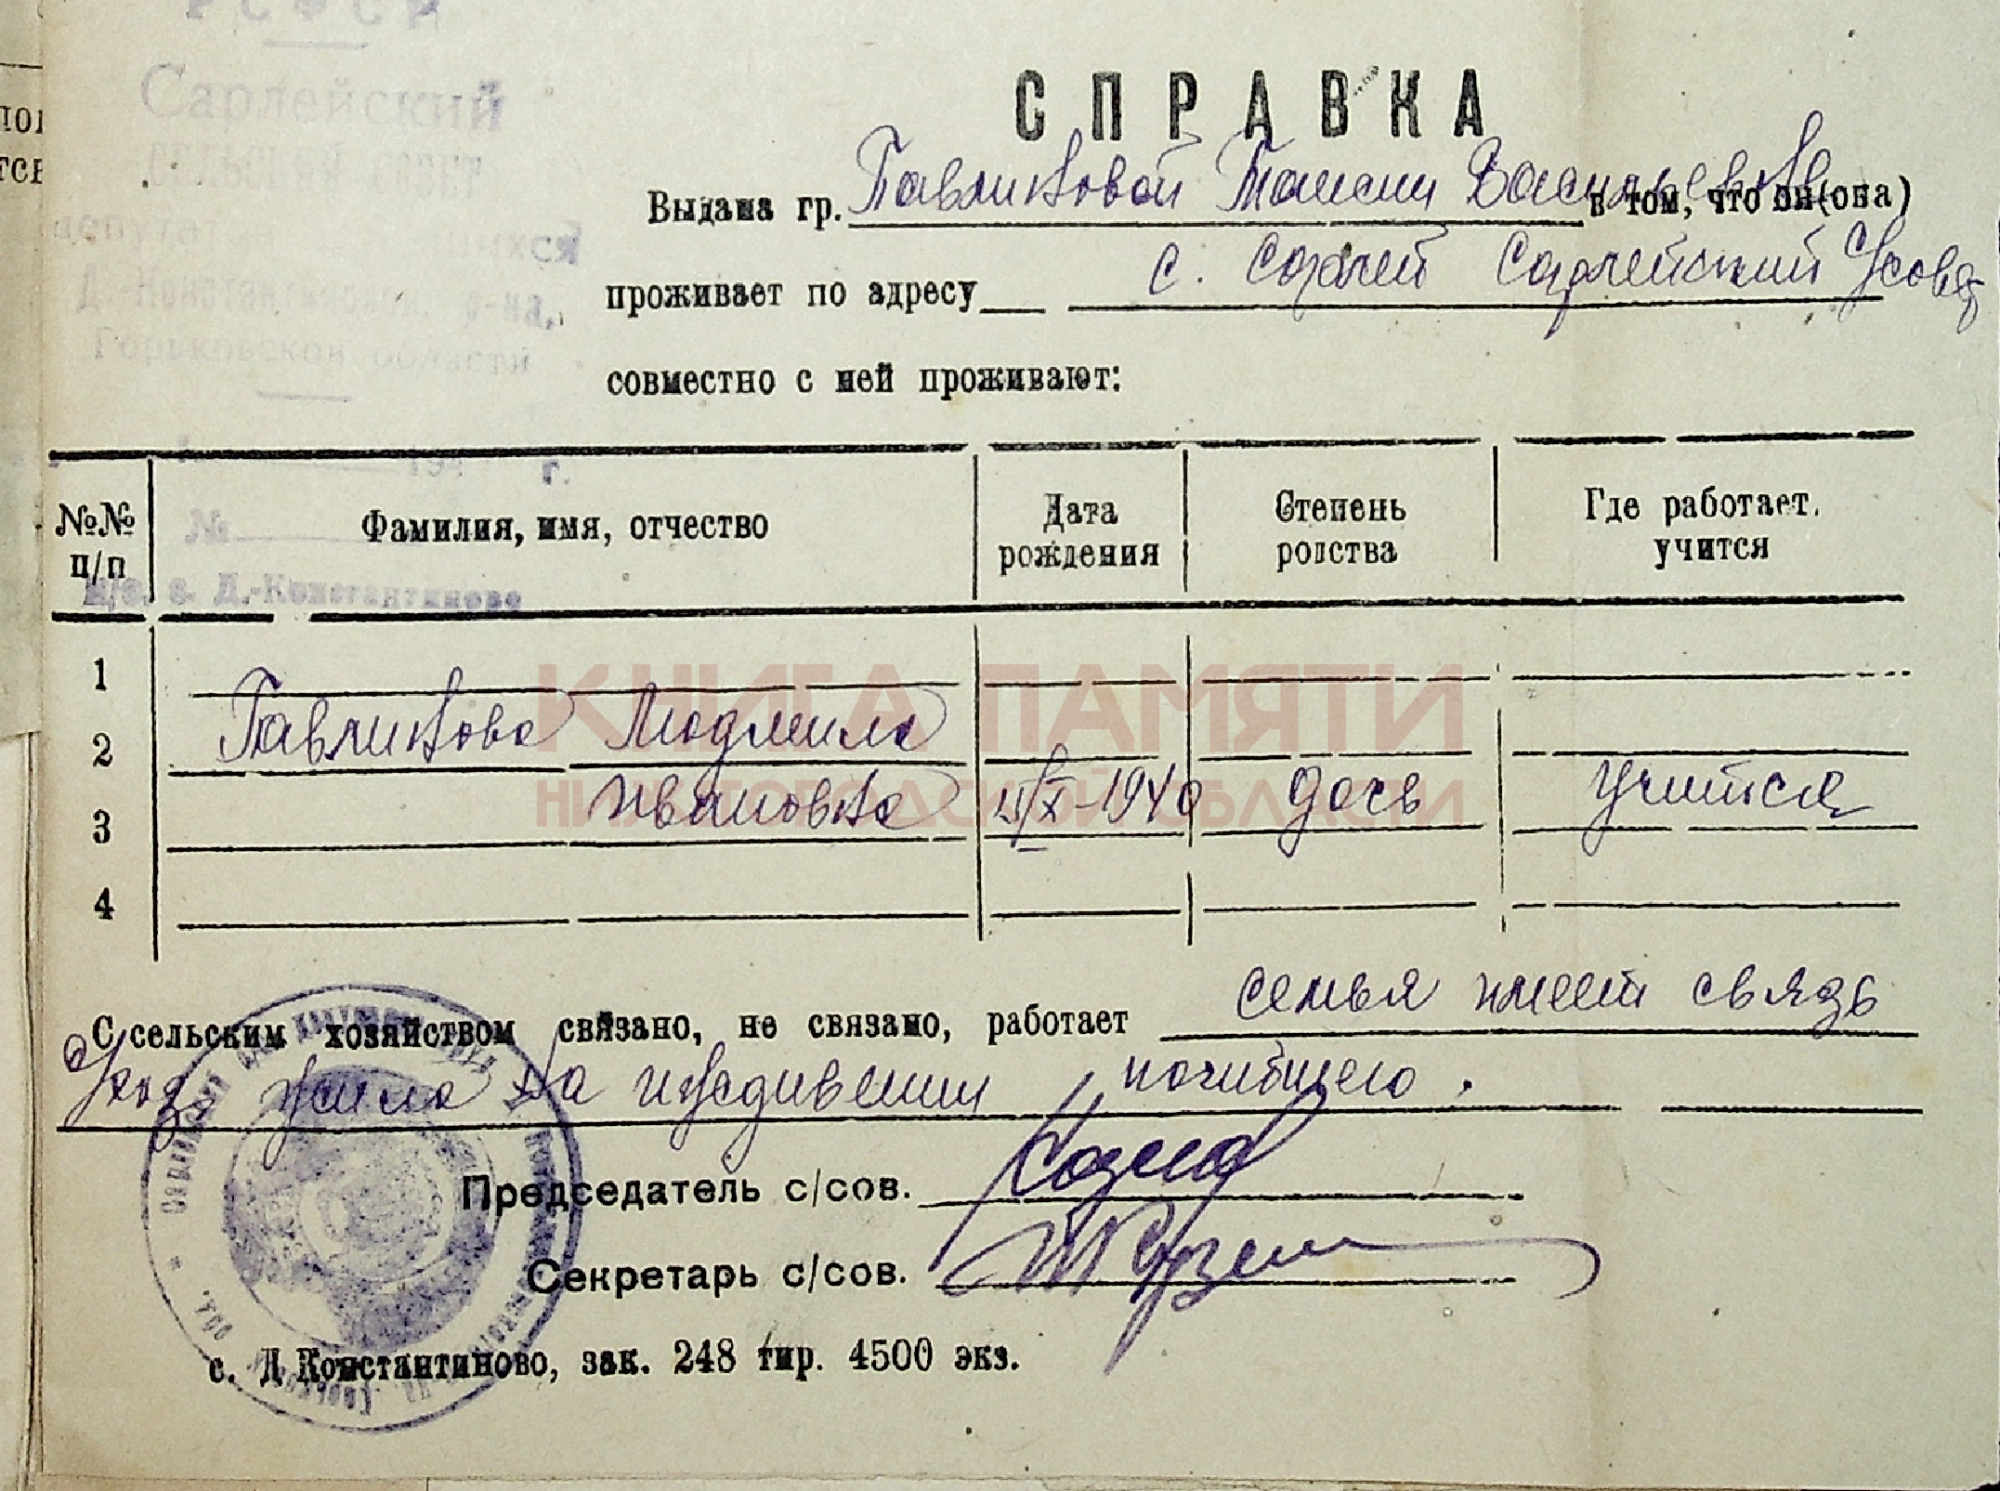 РСФСР
Сарлейский
СЕЛЬСКИЙ СОВЕТ
депутатов
Д.-Константиновск. р-на,
Горьковской области
194 г.
№
п/о. с. Д.-Константиново
СПРАВКА
Выдана гр. Павликовой Таисии Васильевне в том, что он(она)
проживает по адресу с. Сарлей Сарлейский с/совет
совместно с ней проживают:
№№ п/п Фамилия, имя, отчество Дата рождения Степень родства Где работает, учится
1
2 Павликова Людмила
3 Ивановна X-1940 дочь учится
4
КНИГА ПАМЯТИ
НИЖЕГОРОДСКОЙ ОБЛАСТИ
С сельским хозяйством связано, не связано, работает семья имеет связь
с/хоз, жила на иждивении погибшего.
Председатель с/сов.
Секретарь с/сов.
с. Д Константиново, зак. 248 тир. 4500 экз.